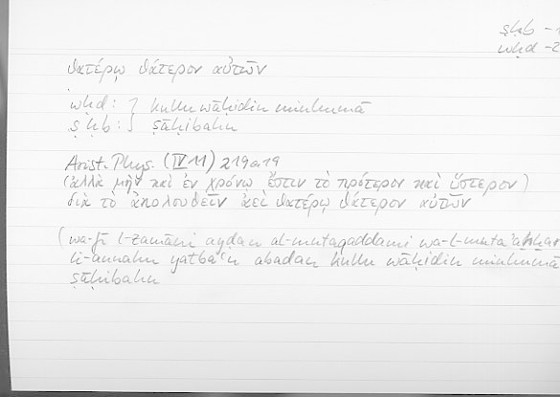 ṣḥb - 1
wḥd - 2
θατέρῳ θάτερον αὐτῶν
wḥd: } kullu wāḥidin minhumā
ṣḥb: } ṣāḥibahu
Arist. Phys. (IV 11) 219a19
(ἀλλὰ μὴν καὶ ἐν χρόνῳ ἔστιν τὸ πρότερον καὶ ὕστερον)
διὰ τὸ ἀκολουθεῖν ἀεὶ θατέρῳ θάτερον αὐτῶν
(wa-fī l-zamāni ayḍan al-mutaqaddami wa-l-mutaʾaḫḫar
li-annahu yatbaʿu abadan kullu wāḥidin minhumā
ṣāḥibahu